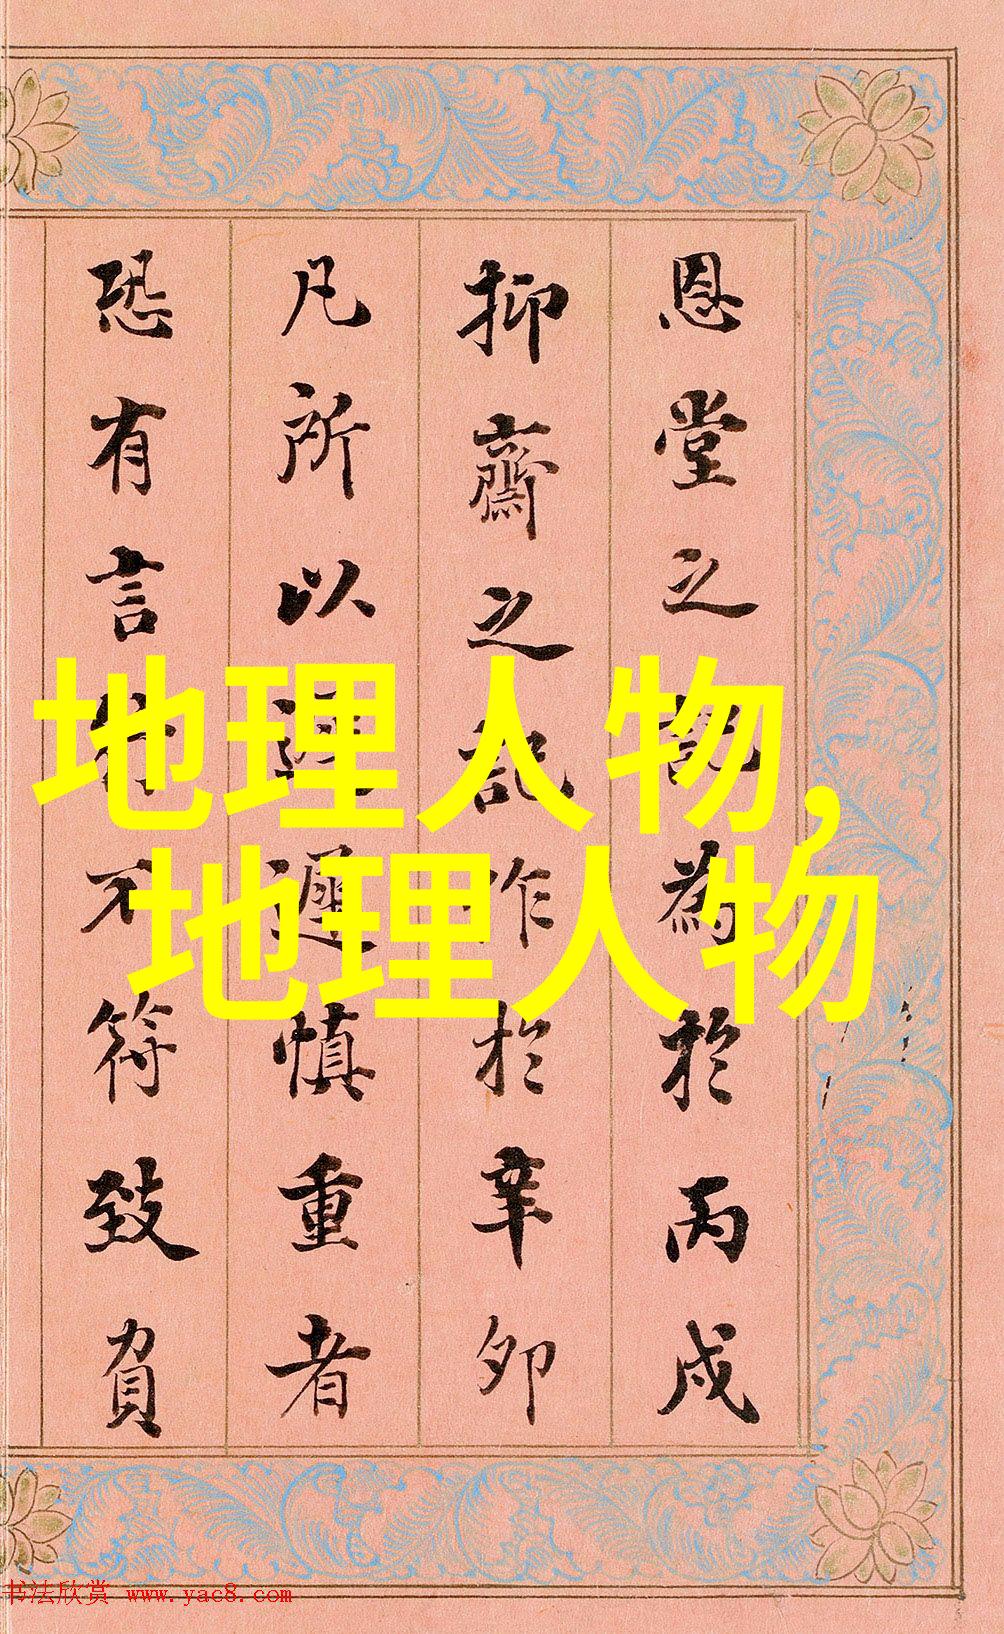 恩堂之記為於丙戌
抑齋之記作於辛夘
凡所以遲遲慎重者
恐有言行不符致負
地理人物,
地理人物
书法欣赏 www.yac8.com